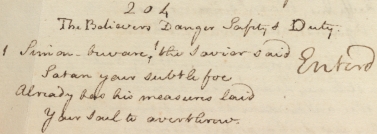 204
The Believers Danger Safty & Duty.
1 Simon beware, the Savior said Enterd
Satan your subtle foe
Already has his measures laid
Your soul to overthrow.